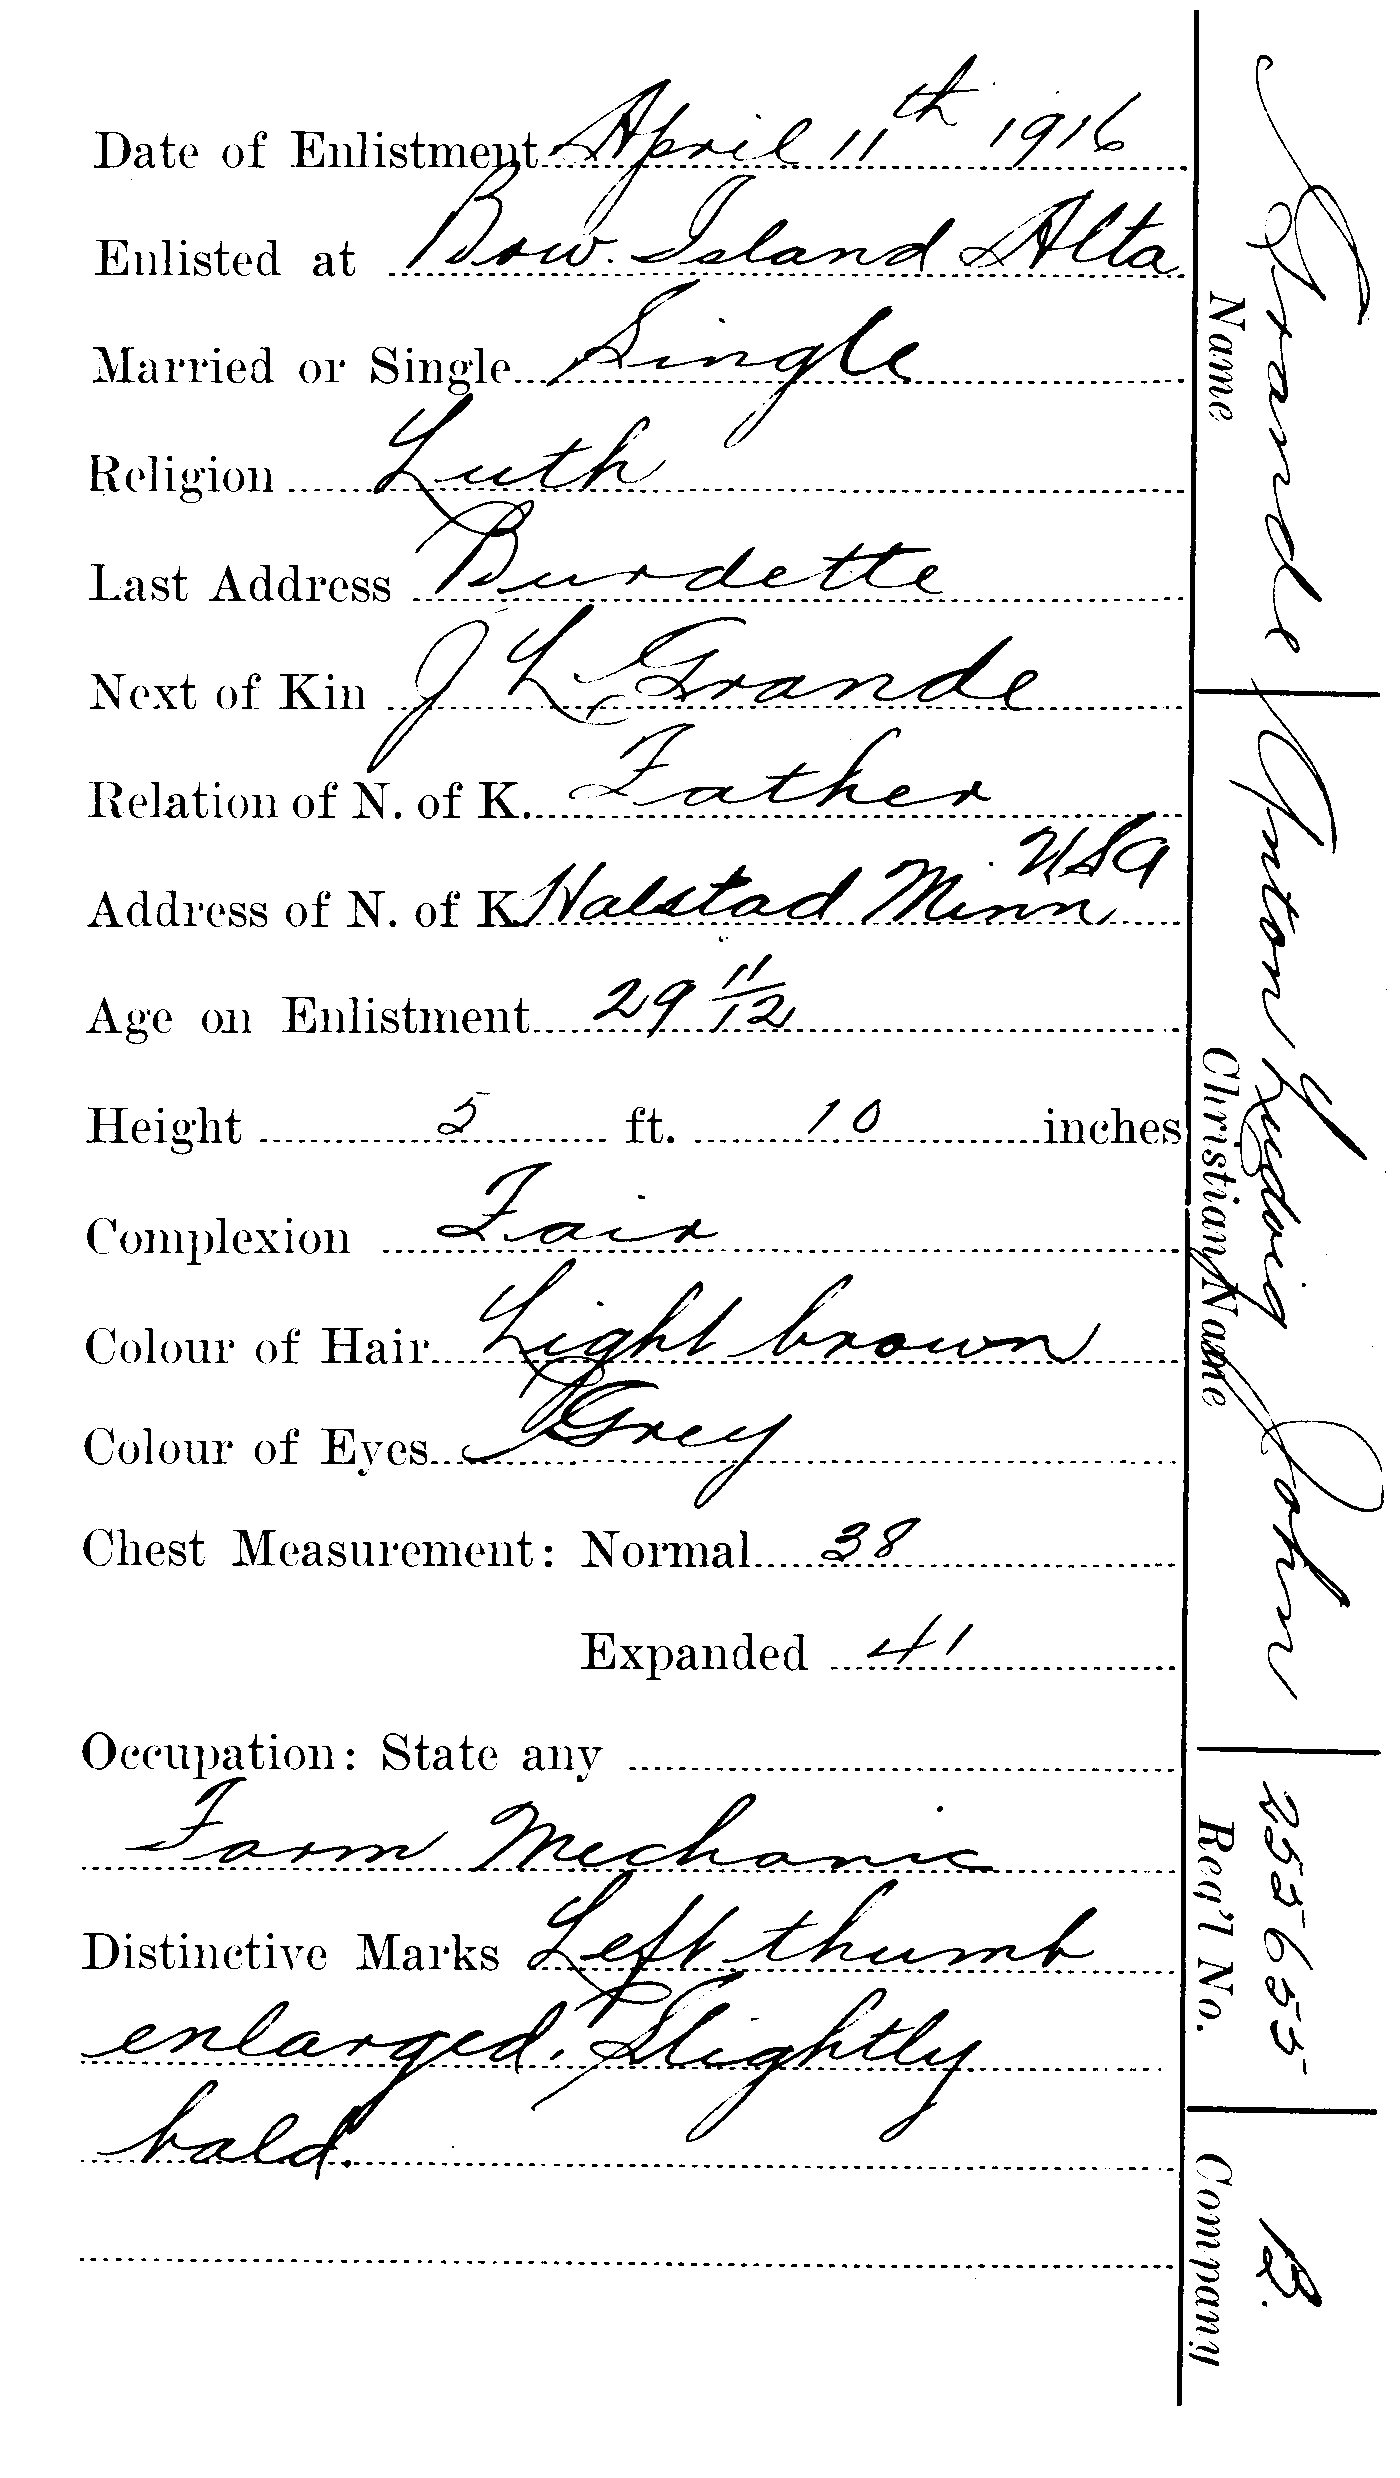 Date of Enlistment April 11th 1916
Enlisted at Bow Island Alta
Married or Single Single
Religion Luth
Last Address Burdette
Next of Kin J L Grande
Relation of N. of K. Father
USA
Address of N. of K Halstad Minn
Age on Enlistment 29 11/12
Height 5 ft. 10 inches
Complexion Fair
Colour of Hair Light brown
Colour of Eyes Grey
Chest Measurement: Normal 38
Expanded 41
Occupation: State any
Farm Mechanic
Distinctive Marks Left thumb
enlarged. Slightly
bald.
Grande Anton John
Name Christian Name Reg'l No. Company
255655 B.